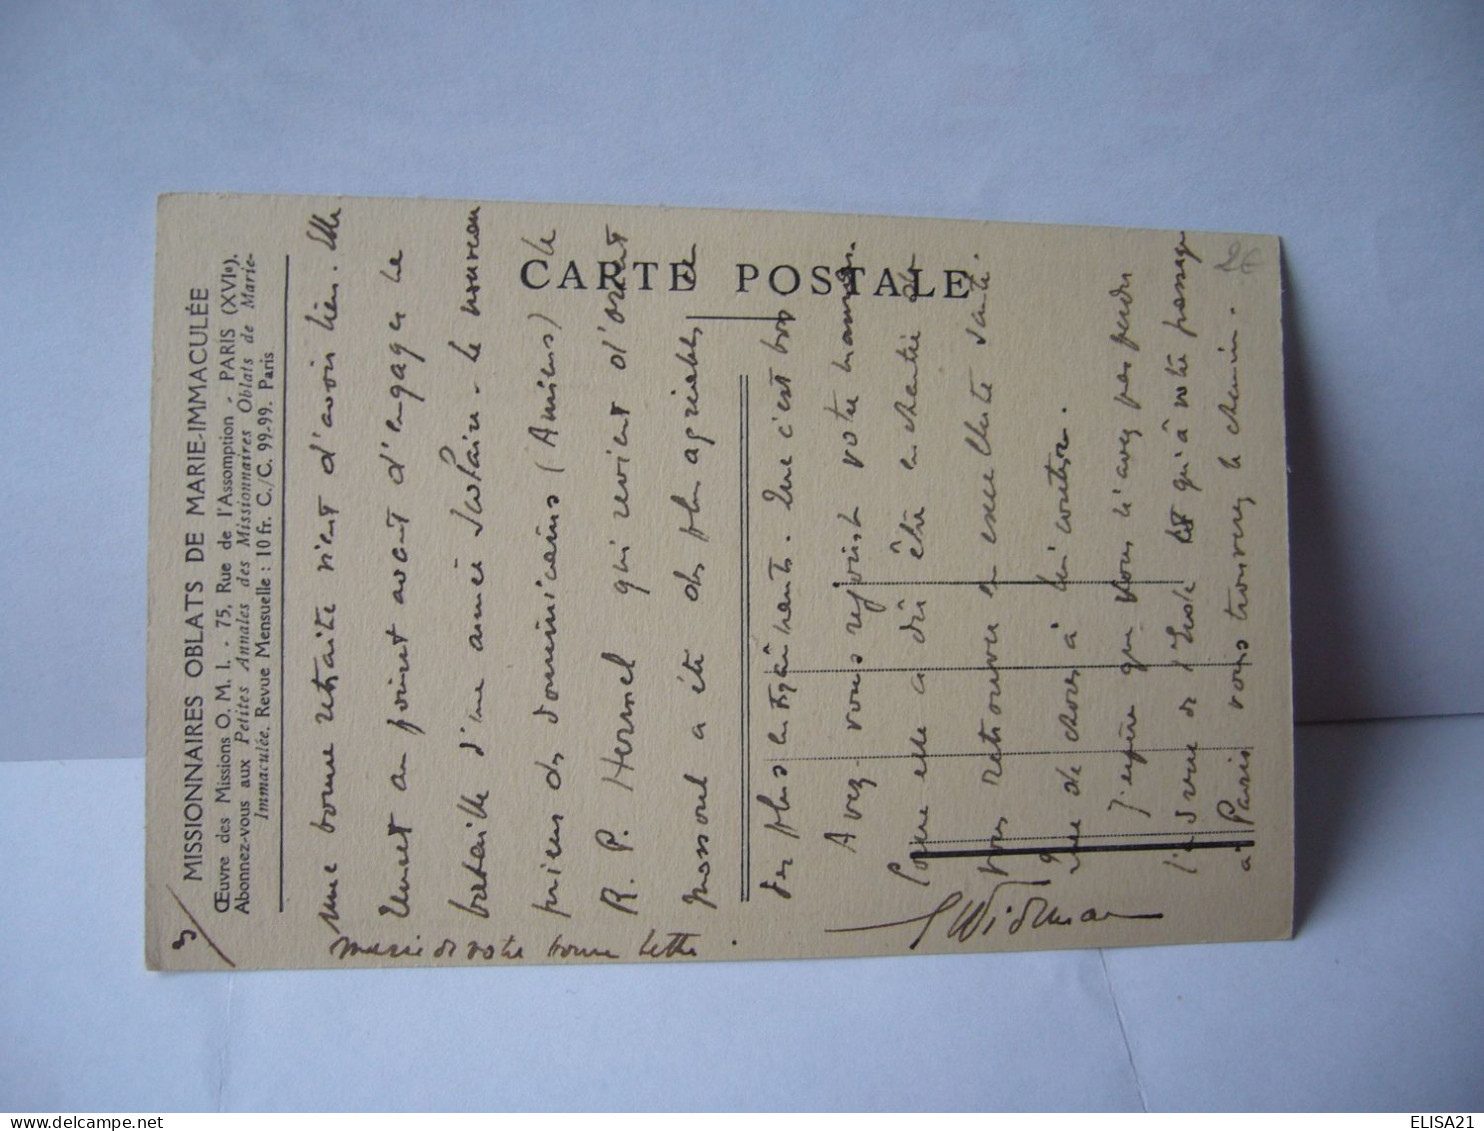 3/
MISSIONNAIRES OBLATS DE MARIE-IMMACULÉE
Œuvre des Missions O. M. I. - 75, Rue de l'Assomption - PARIS (XVIe).
Abonnez-vous aux Petites Annales des Missionnaires Oblats de Marie-
Immaculée. Revue Mensuelle : 10 fr. C./C. 99-99. Paris
CARTE POSTALE
une bonne retraite vient d'avoir lieu. Elle
avant d'engager la
bataille d'une année scolaire. Le nouveau
prieur des dominicains (Amiens) le
R. P. Hermel qui revient d'orient
a été des plus agréables
des plus entraînants. Que c'est bon !
Avez-vous rejoint votre maman.
Comme elle a dû être enchantée de
vous retrouver en excellente santé.
que de choses à lui conter.
J'espère que vous n'avez pas perdu
l'adresse de l'école et qu'à votre passage
à Paris vous trouverez le chemin.
Widman
merci de votre bonne lettre.
2€
ELISA21